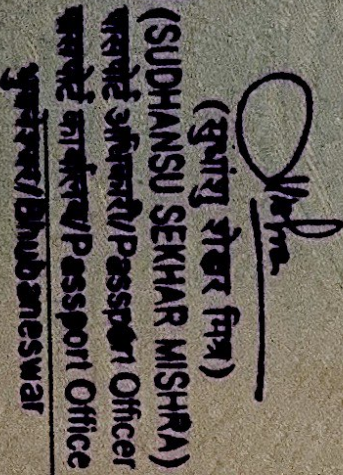 (सुधांशु शेखर मिश्र)
(SUDHANSU SEKHAR MISHRA)
पासपोर्ट अधिकारी/Passport Officer
पासपोर्ट कार्यालय/Passport Office
भुवनेश्वर/Bhubaneswar